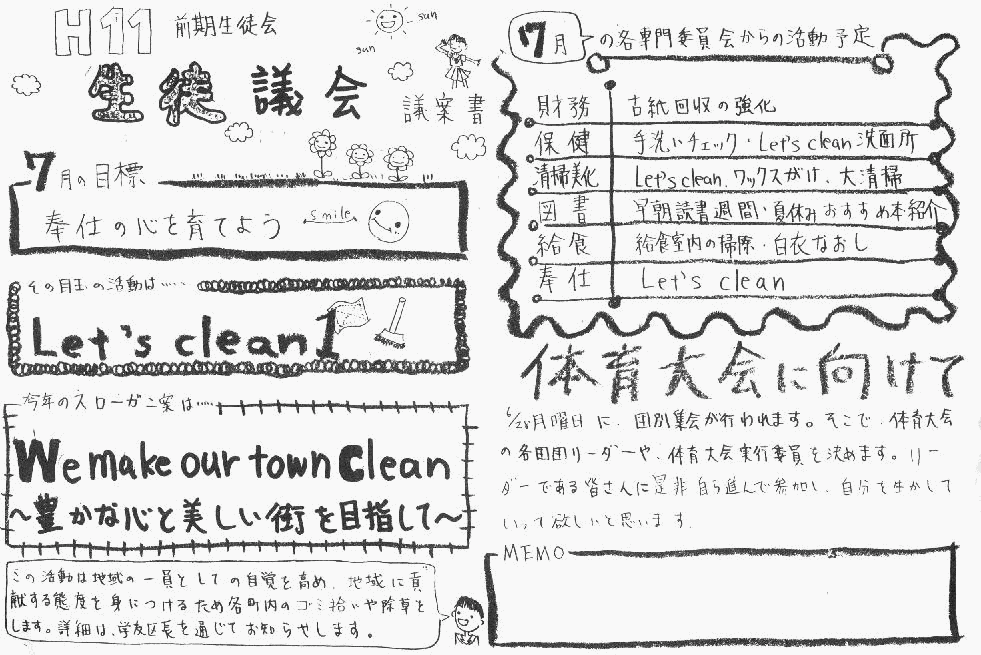 H11 前期生徒会
sun
sun
生徒議会
議案書
7月の目標
奉仕の心を育てよう
smile
その目玉の活動は・・・・・
Let's clean 1
今年のスローガン案は・・・・・
We make our town Clean
～豊かな心と美しい街を目指して～
この活動は地域の一員としての自覚を高め、地域に貢
献する態度を身につけるため各町内のゴミ拾いや除草を
します。詳細は、学友区長を通じてお知らせします。
7月の各専門委員会からの活動予定
財務 古紙回収の強化
保健 手洗いチェック・Let's clean 洗面所
清掃美化 Let's clean、ワックスがけ、大清掃
図書 早朝読書週間・夏休みおすすめ本紹介
給食 給食室内の掃除・白衣なおし
奉仕 Let's clean
体育大会に向けて
6/28月曜日に、団別集会が行われます。そこで、体育大会
の各団団リーダーや、体育大会実行委員を決めます。リー
ダーである皆さんに是非自ら進んで参加し、自分を生かして
いって欲しいと思います。
MEMO